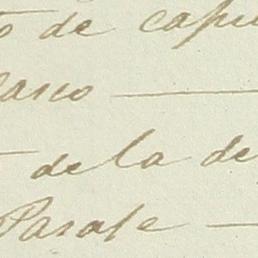 o de capi
lasco —
— de la de
Parase —